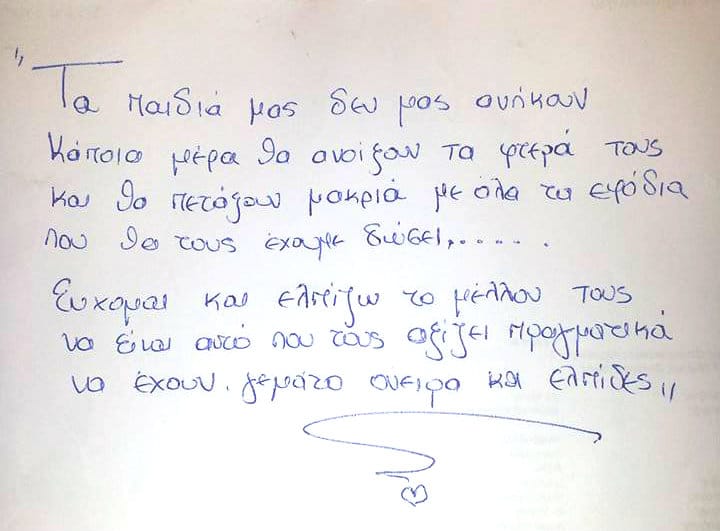 " Τα παιδιά μας δεν μας ανήκουν
Κάποια μέρα θα ανοίξουν τα φτερά τους
και θα πετάξουν μακριά με όλα τα εφόδια
που θα τους έχουμε δώσει,......
Εύχομαι και ελπίζω το μέλλον τους
να είναι αυτό που τους αξίζει πραγματικά
να έχουν. γεμάτο όνειρα και ελπίδες "